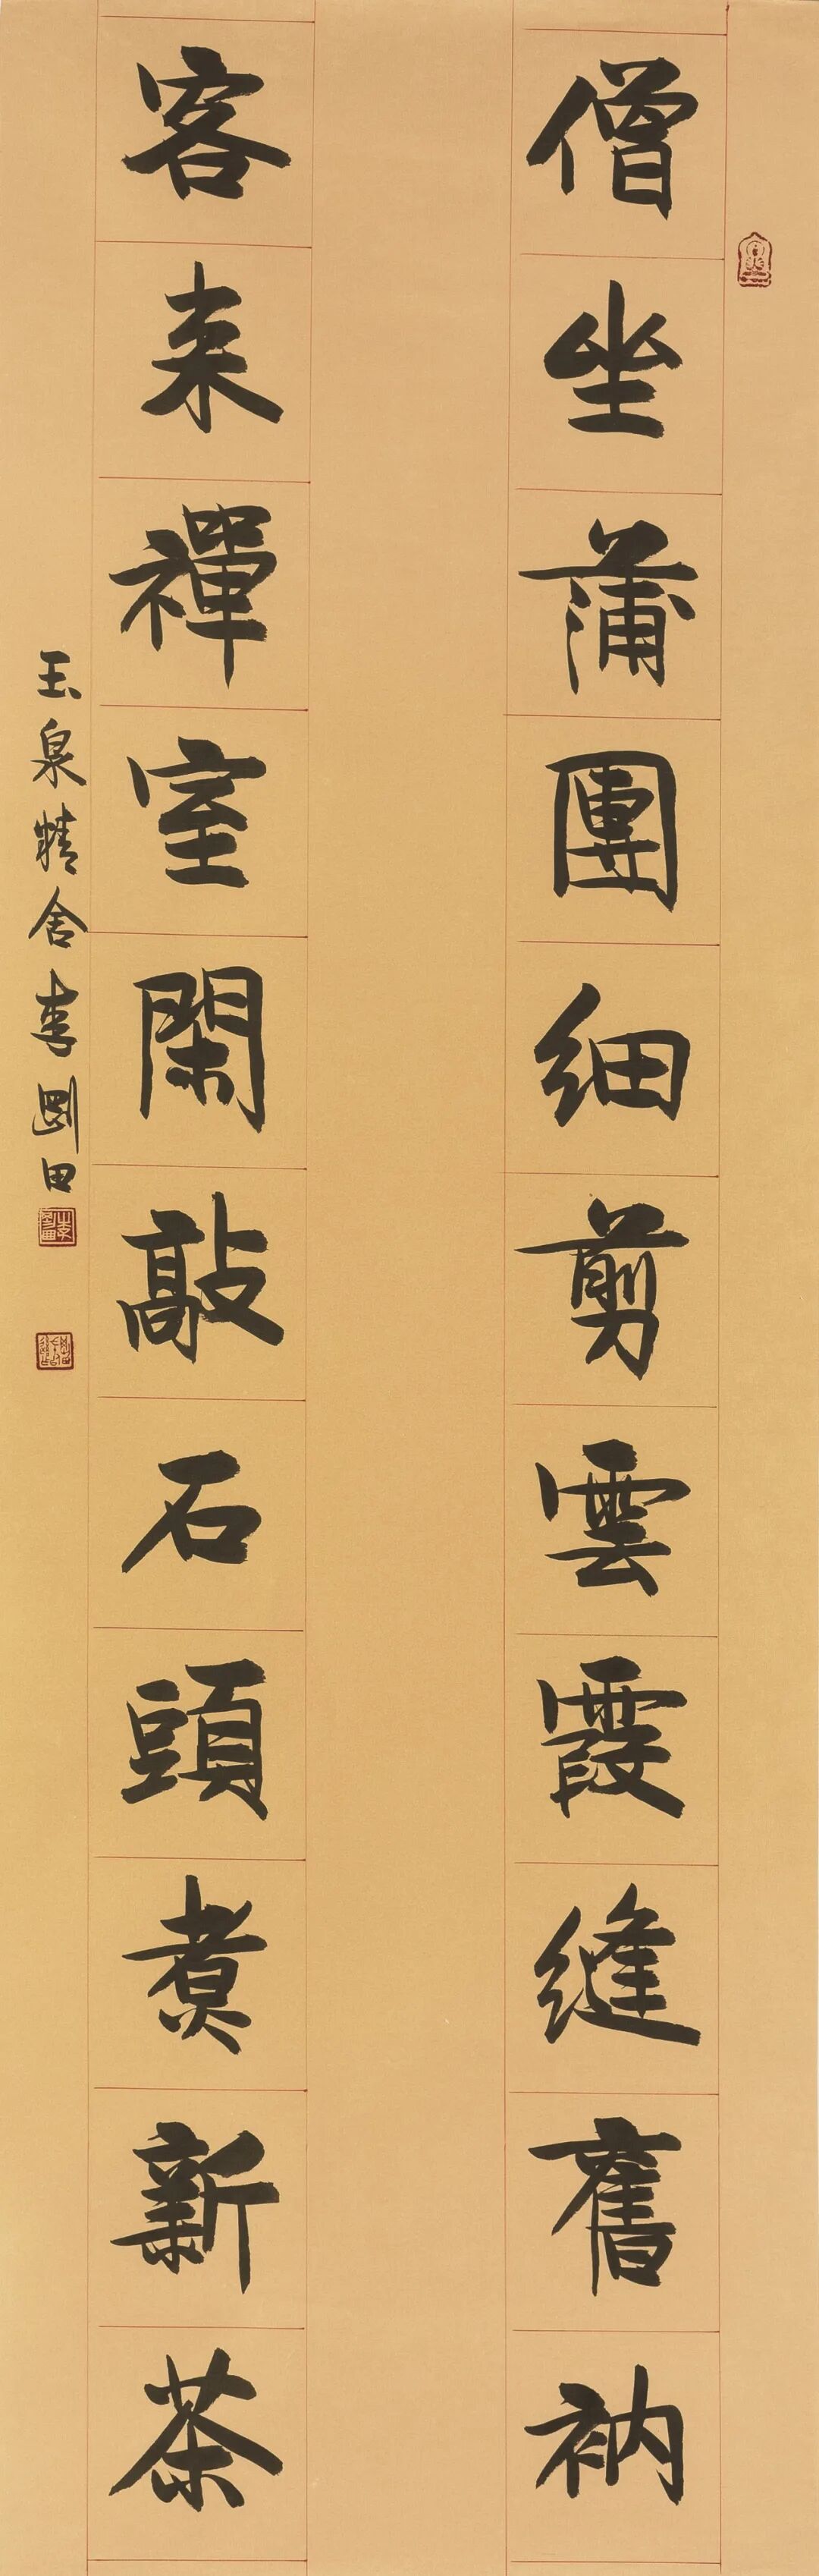 僧坐蒲團細剪雲霞縫舊衲
客来禪室閑敲石頭煑新茶
玉泉精舍李剛田